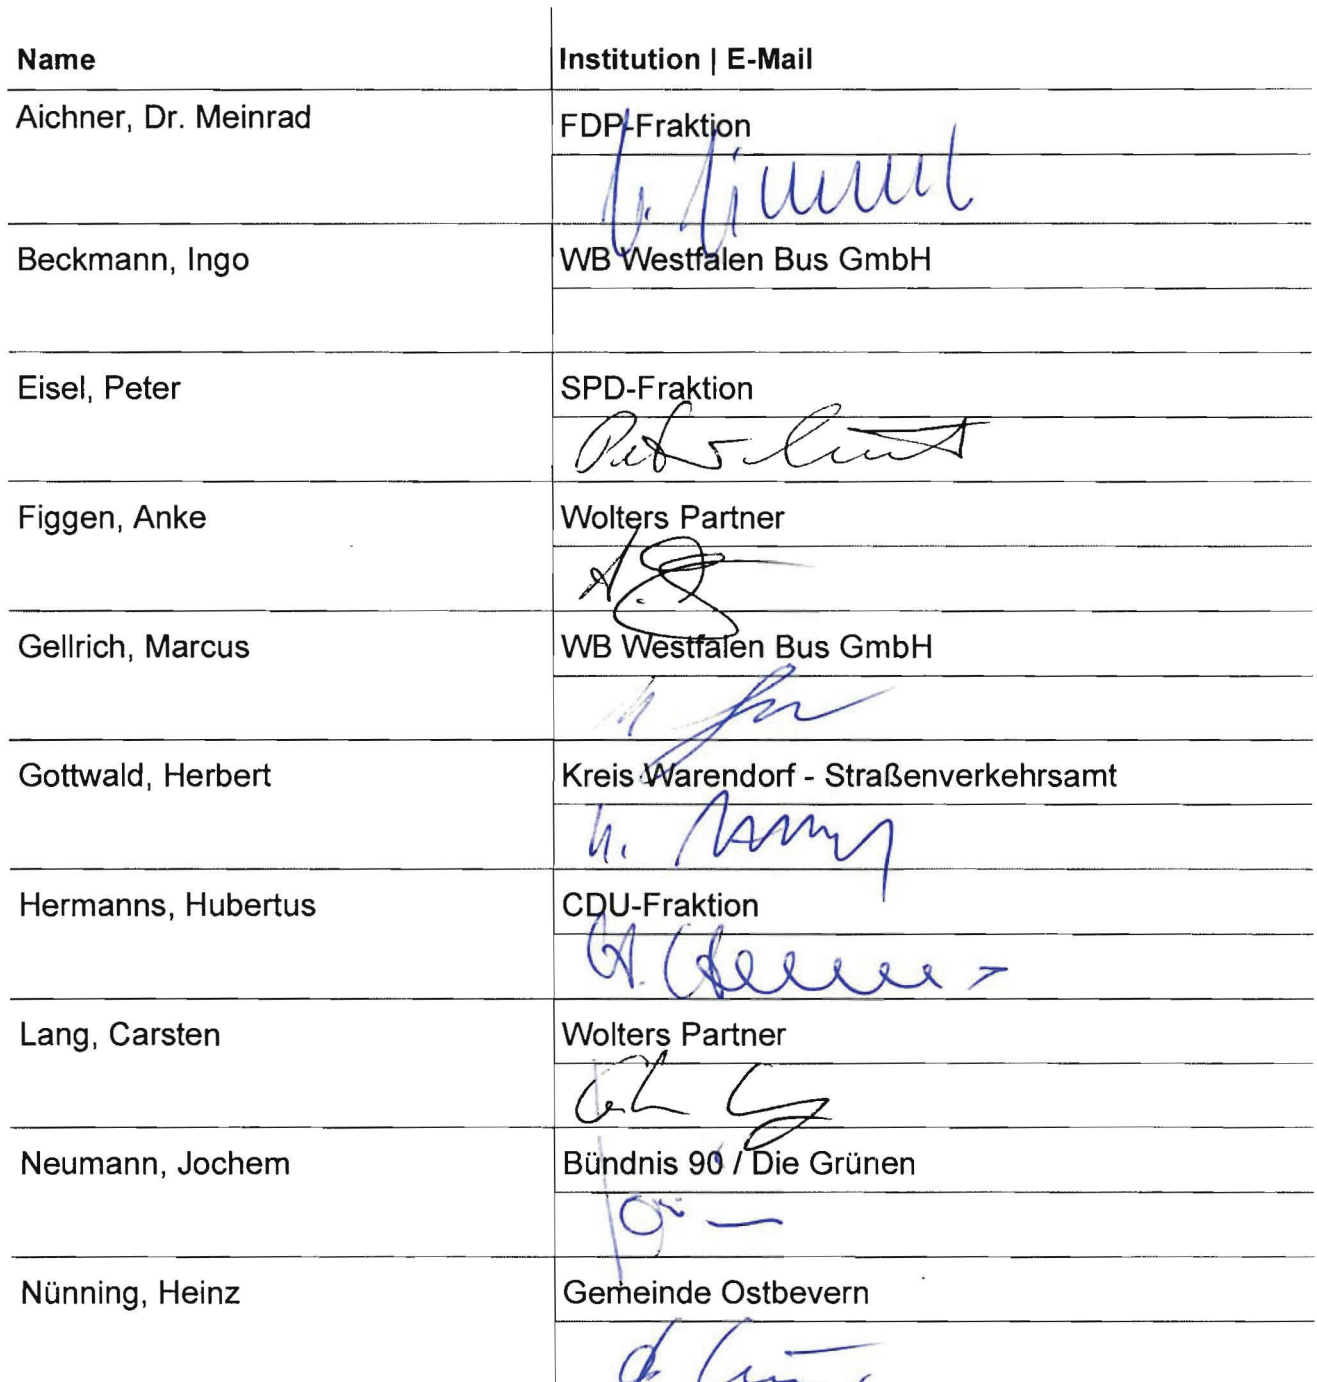 Name Institution | E-Mail
Aichner, Dr. Meinrad FDP-Fraktion
Beckmann, Ingo WB Westfalen Bus GmbH
Eisel, Peter SPD-Fraktion
Peter
Figgen, Anke Wolters Partner
Gellrich, Marcus WB Westfalen Bus GmbH
Gottwald, Herbert Kreis Warendorf - Straßenverkehrsamt
Hermanns, Hubertus CDU-Fraktion
Lang, Carsten Wolters Partner
Neumann, Jochem Bündnis 90 / Die Grünen
Nünning, Heinz Gemeinde Ostbevern